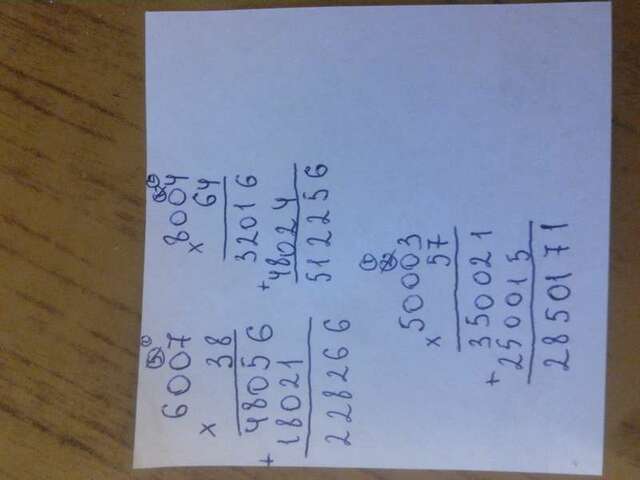 6007
× 38
48056
+
18021
228266
8004
× 64
32016
+
48024
512256
1
50003
× 57
350021
+
250015
2850171